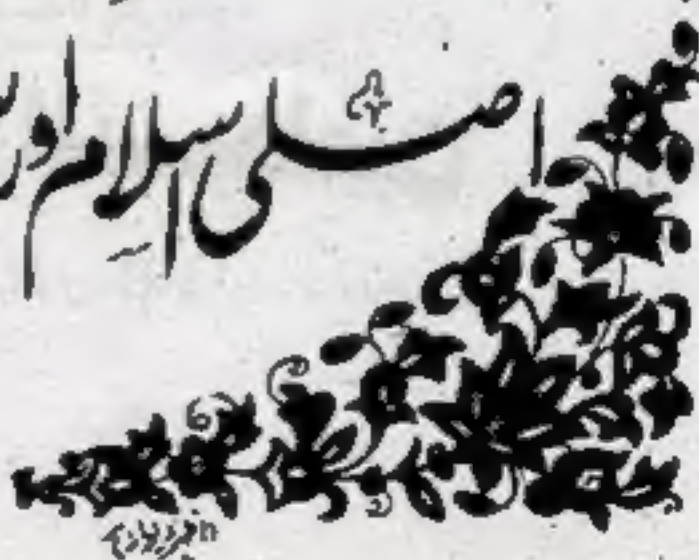 اصلی اسلام اور